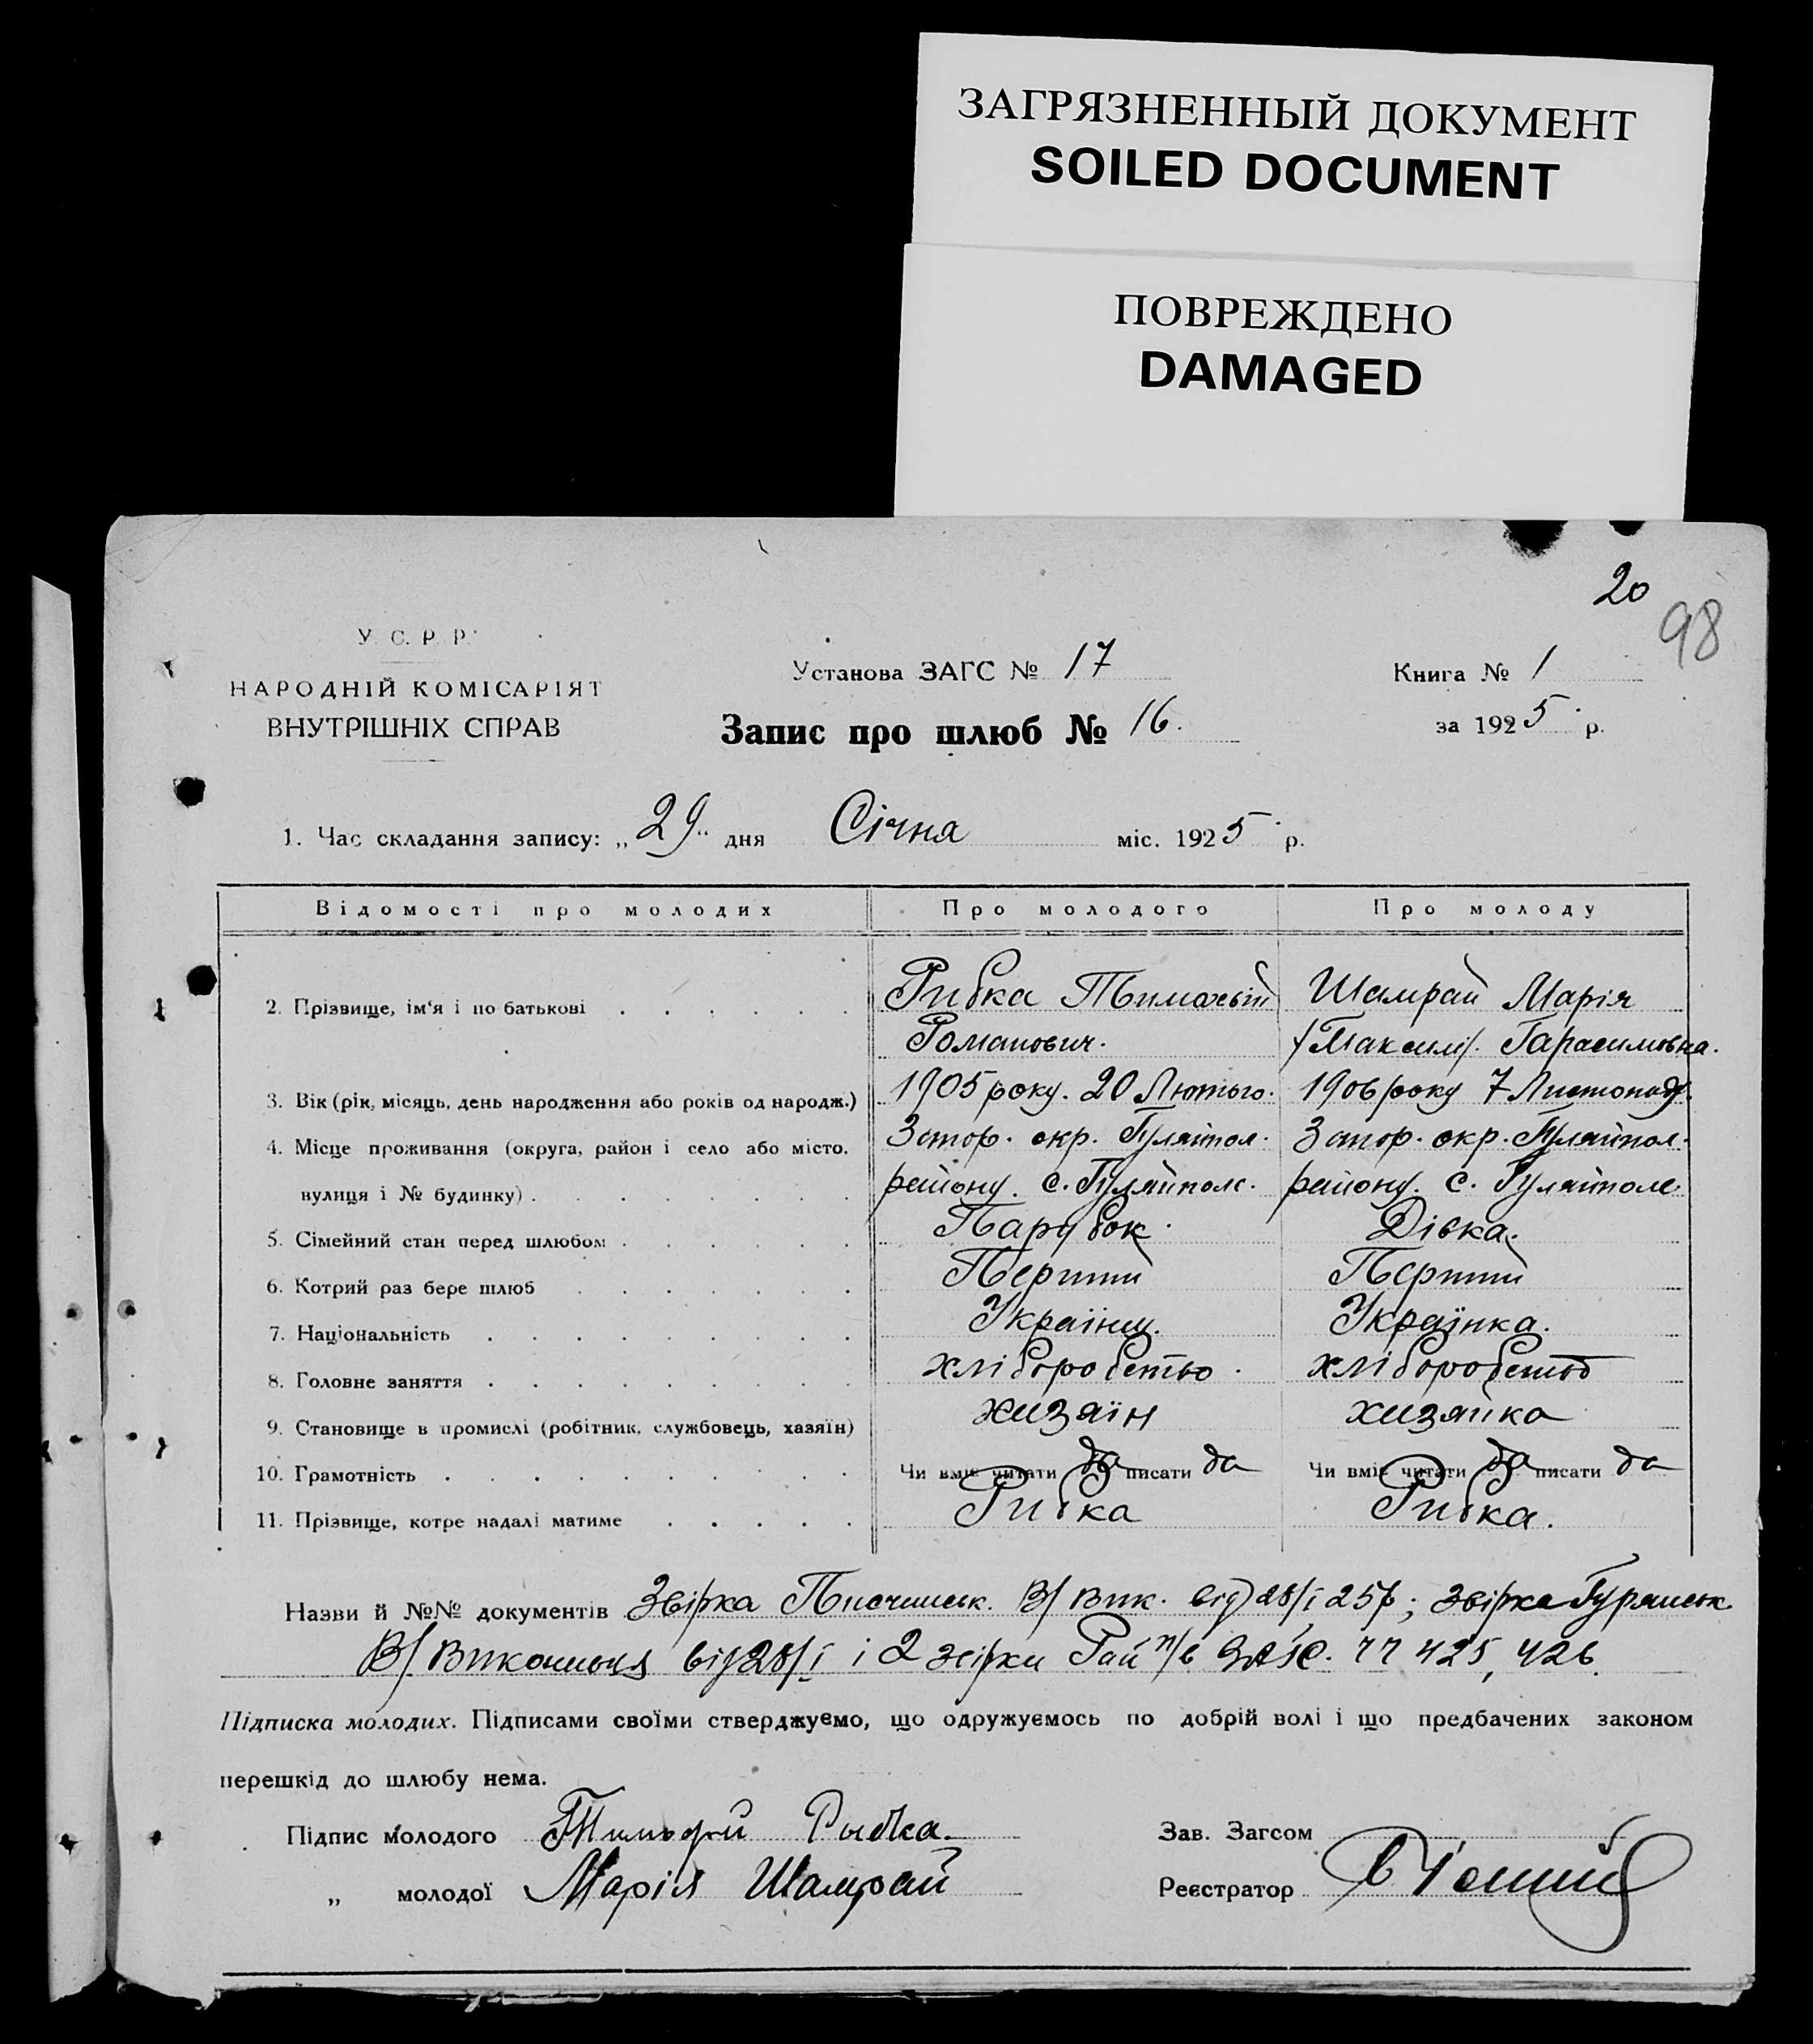 ЗАГРЯЗНЕННЫЙ ДОКУМЕНТ
SOILED DOCUMENT
ПОВРЕЖДЕНО
DAMAGED
20
98
У. С. Р. Р.
НАРОДНІЙ КОМІСАРІЯТ
ВНУТРІШНІХ СПРАВ
Установа ЗАГС № 17
Книга № 1
Запис про шлюб № 16.
за 1925 р.
1. Час складання запису: „29“ дня Січня міс. 1925 р.
Відомості про молодих Про молодого Про молоду
2. Прізвище, ім'я і по батькові Рибка Тимохвій Шамрай Марія
Романович. /Максим/. Гарасимовна.
3. Вік (рік, місяць, день народження або років од народж.) 1905 року. 20 Лютого. 1906 року 7 Листопаду.
4. Місце проживання (округа, район і село або місто, Запор. окр. Гуляйпол. Запор. окр. Гуляйпол.
вулиця і № будинку) району. с. Гуляйполе. району. с. Гуляйполе
5. Сімейний стан перед шлюбом Парубок. Дівка.
6. Котрий раз бере шлюб Перший Перший
7. Національність Українец. Українка.
8. Головне заняття хліборобство. хліборобство
9. Становище в промислі (робітник, службовець, хазяїн) хизяїн хизяйка
10. Грамотність Чи вміє читати да писати да Чи вміє читати да писати да
11. Прізвище, котре надалі матиме Рибка Рибка.
Назви й №№ документів Звірка В/Вик. від 28/I 25р; звірка
В/Виконкома від 28/I і 2 звірки Рай 425, 426.
Підписка молодих. Підписами своїми стверджуємо, що одружуємось по добрій волі і що предбачених законом
перешкід до шлюбу нема.
Підпис молодого Тимофій Рыбка.
Зав. Загсом
„ молодої Марія Шамрай
Реєстратор